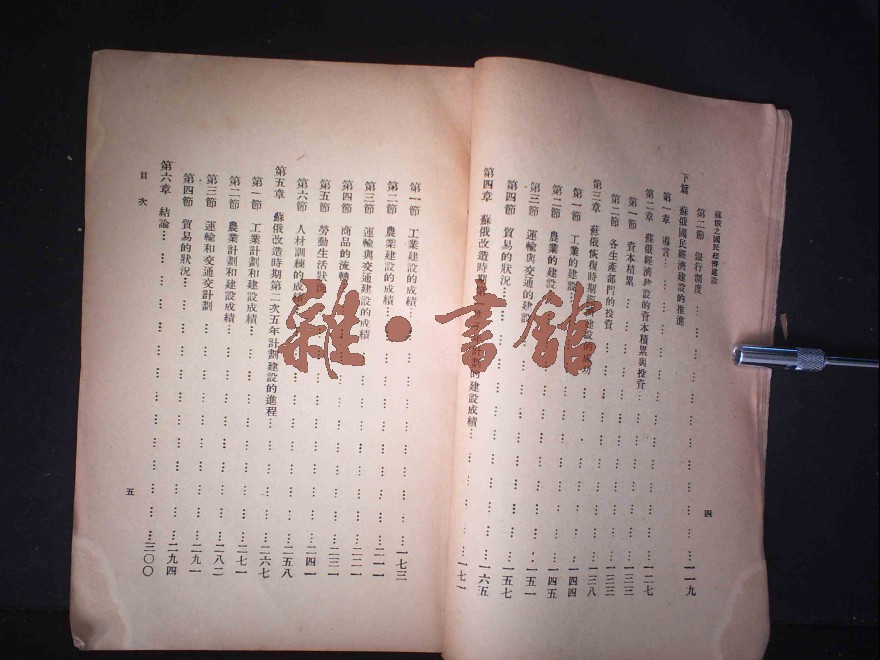 蘇俄之國民經濟建設
四
第二節 銀行制度……………………一一九
下篇 蘇俄國民經濟建設的推進
第一章 導言……………………一二七
第二章 蘇俄經濟建設的資本積累與投資……………………一三三
第一節 資本積累……………………一三三
第二節 各生產部門的投資……………………一三八
第三章 蘇俄恢復時期經濟建設的成功……………………一四四
第一節 工業的建設……………………一四五
第二節 農業的建設……………………一五一
第三節 運輸與交通的建設……………………一五七
第四節 貿易的狀況……………………一六五
第四章 蘇俄改造時期的建設成績……………………一七一
第一節 工業建設的成績……………………一七三
第二節 農業建設的成績……………………二一一
第三節 運輸與交通建設的成績……………………二二一
第四節 商品的流轉……………………二三一
第五節 勞動生活狀況……………………二四一
第六節 人材訓練的成績……………………二五八
第五章 蘇俄改造時期第二次五年計劃建設的進程……………………二六七
第一節 工業計劃和建設成績……………………二七一
第二節 農業計劃和建設成績……………………二八二
第三節 運輸和交通交計劃……………………二九一
第四節 貿易的狀況……………………二九四
第六章 結論……………………三〇〇
目次
五
雜·書館